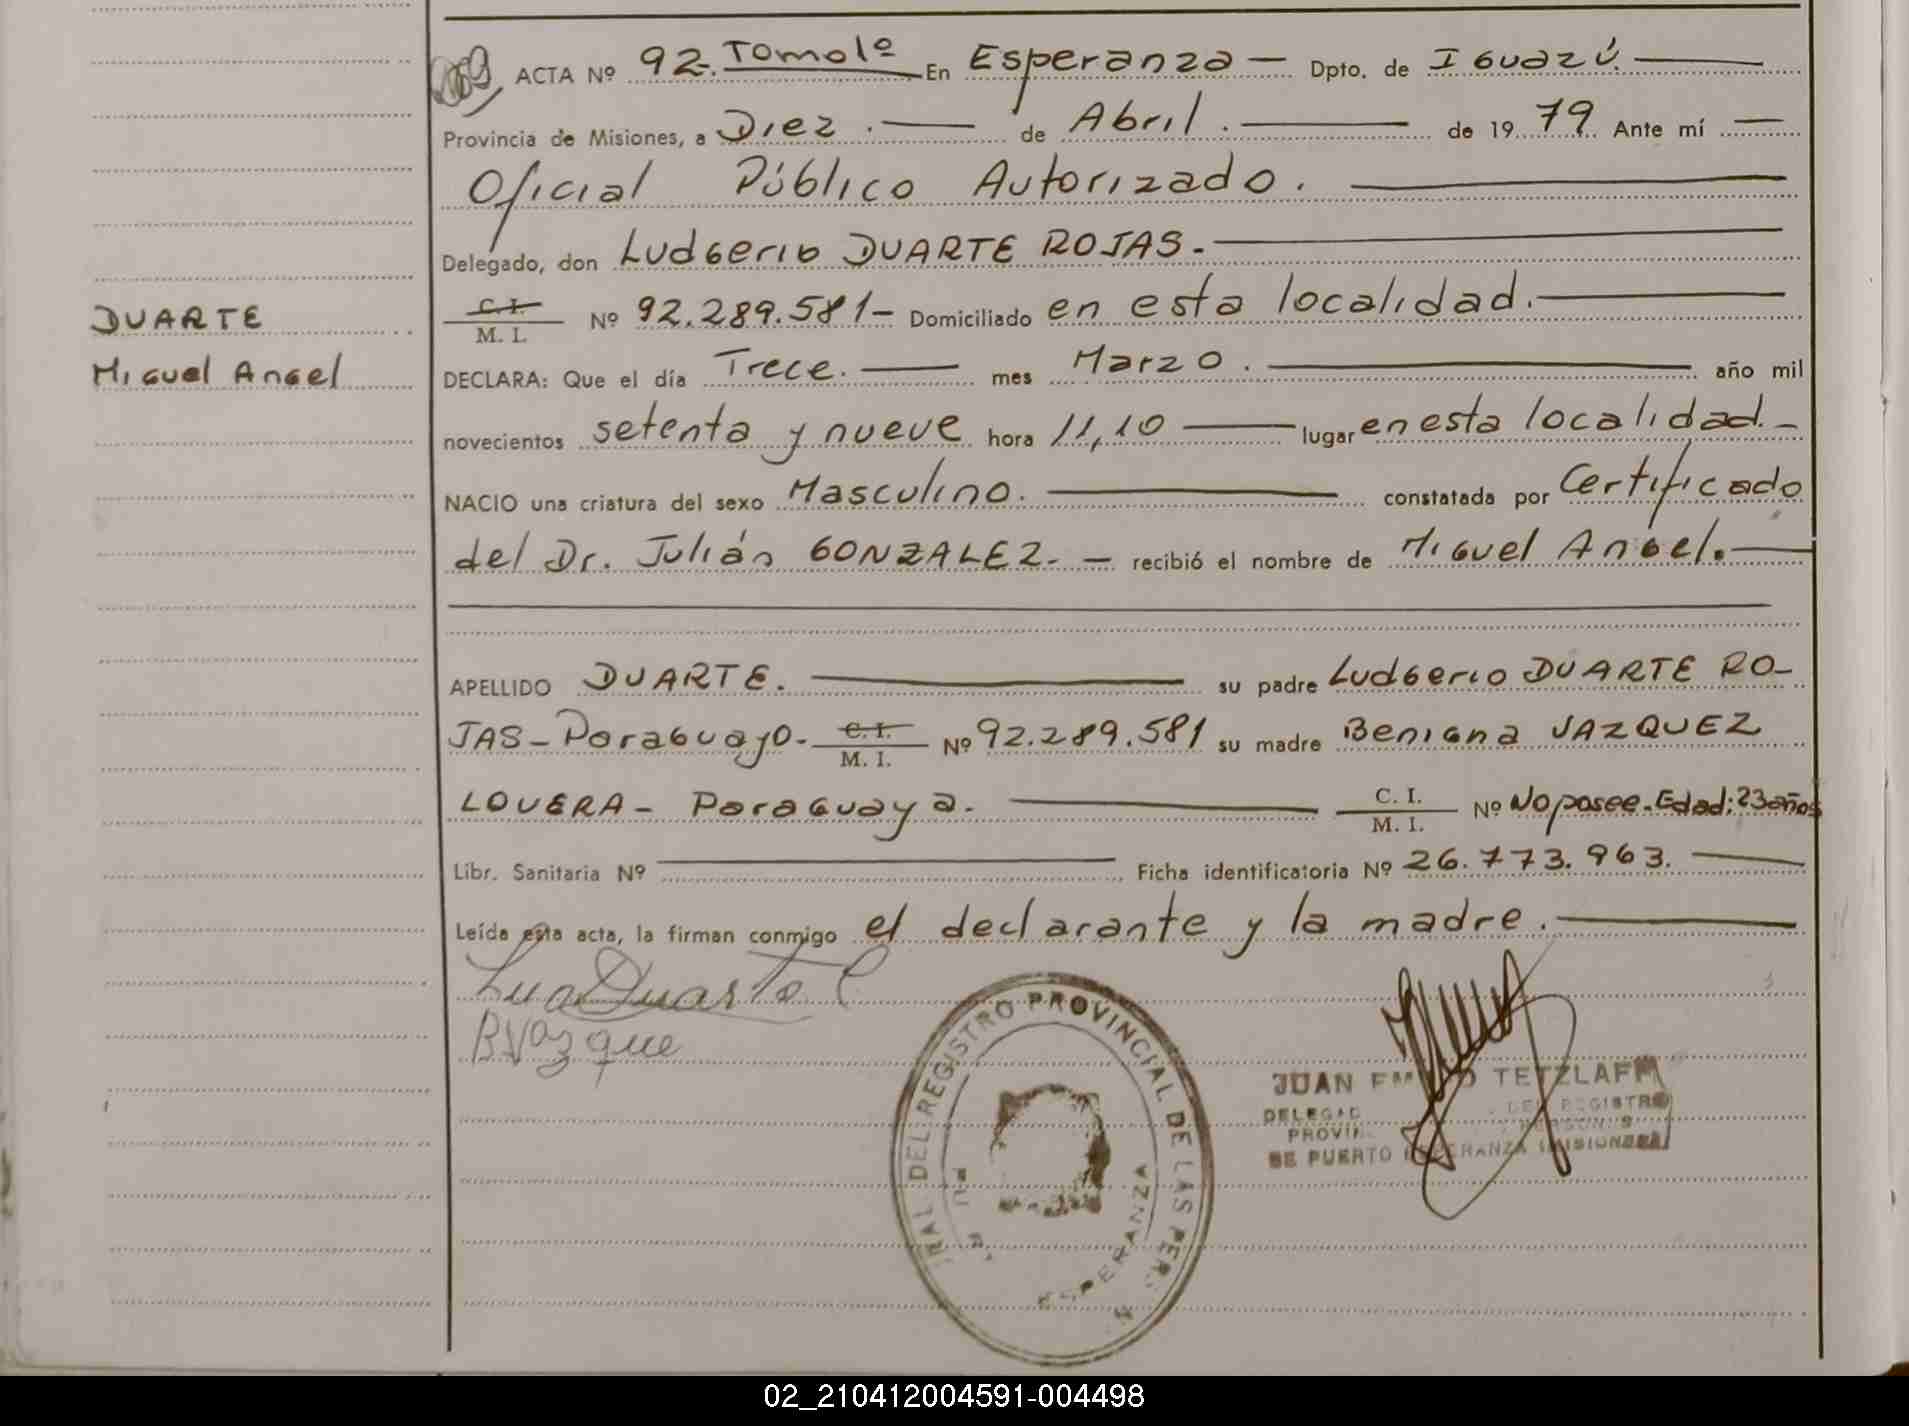 ACTA Nº 92. Tomo 1º En Esperanza — Dpto. de Iguazú.
Provincia de Misiones, a Diez. — de Abril. — de 19 79 Ante mí —
Oficial Público Autorizado. —
Delegado, don Ludgerio DUARTE ROJAS. —
C. I. / M. I. Nº 92.289.581 – Domiciliado en esta localidad. —
DUARTE
Miguel Angel
DECLARA: Que el día Trece. — mes Marzo. — año mil
novecientos setenta y nueve hora 11,10 — lugar en esta localidad. –
NACIO una criatura del sexo Masculino. — constatada por Certificado
del Dr. Julián GONZALEZ. – recibió el nombre de Miguel Angel. —
APELLIDO DUARTE. — su padre Ludgerio DUARTE RO-
JAS – Paraguayo – C. I. / M. I. Nº 92.289.581 su madre Benigna VAZQUEZ
LOVERA – Paraguaya. — C. I. / M. I. Nº No posee. Edad: 23 años
Libr. Sanitaria Nº — Ficha identificatoria Nº 26.773.963. —
Leída esta acta, la firman conmigo el declarante y la madre. —
Duarte
BVazque
RAL DEL REGISTRO PROVINCIAL DE LAS PER
ESPERANZA
JUAN TETZLAFF
DEL REGISTRO
DE PUERTO ESPERANZA MISIONES
02_210412004591-004498